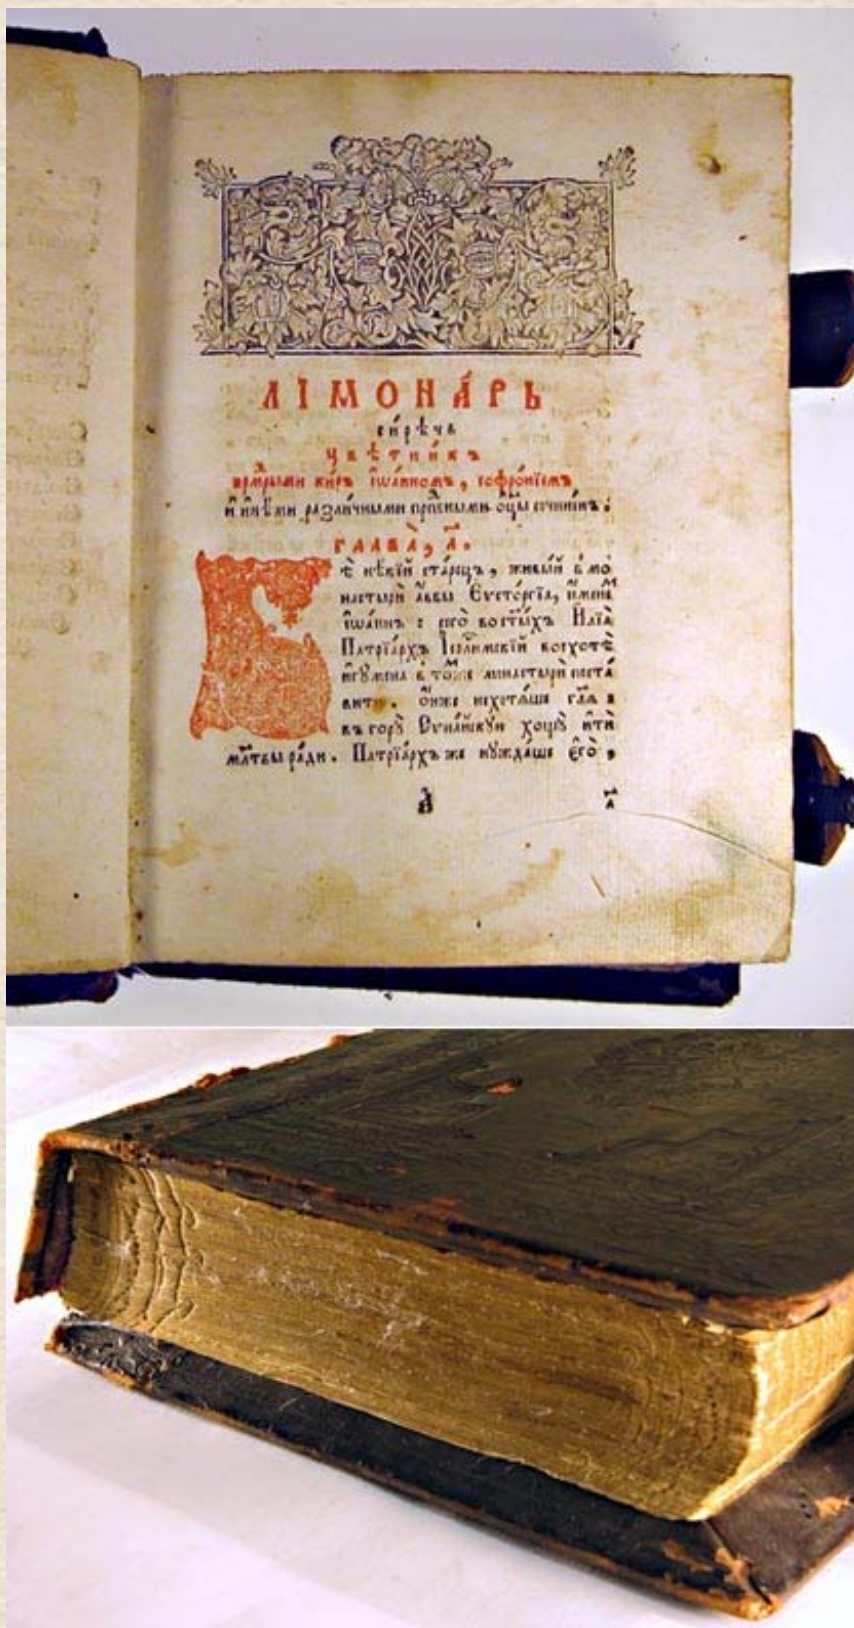 ЛІМОНА́РЬ
си́рѣчь
цвѣтни́къ
кѵ́ръ і҆ѡа́нномъ, софро́нїемъ
и҆ и҆нѣ́ми разли́чными прпⷣбными ѻ҆цы̀ сочине́нъ:
ГЛАВА̀, а҃.
Бѣ̀ нѣ́кїй ста́рецъ, живы́й в̾ мо
настырѝ а҆́ввы Еѵсто́ргїа, и҆́менемъ
і҆ѡа́ннъ: є҆го̀ Илїа̀
Патрїа́рхъ Іерⷭ҇ли́мскїй восхотѣ̀
и҆гꙋ́мена в̾ то́мже монастырѝ поста́
вити. Ѻ҆́нже нехотѧ́ше гл҃ѧ:
въ горꙋ̀ Сѵна́йскꙋю хощꙋ̀ и҆тѝ
мл҃твы ра́ди. Патрїа́рхъ же нꙋжда́ше є҆го̀,
а҃